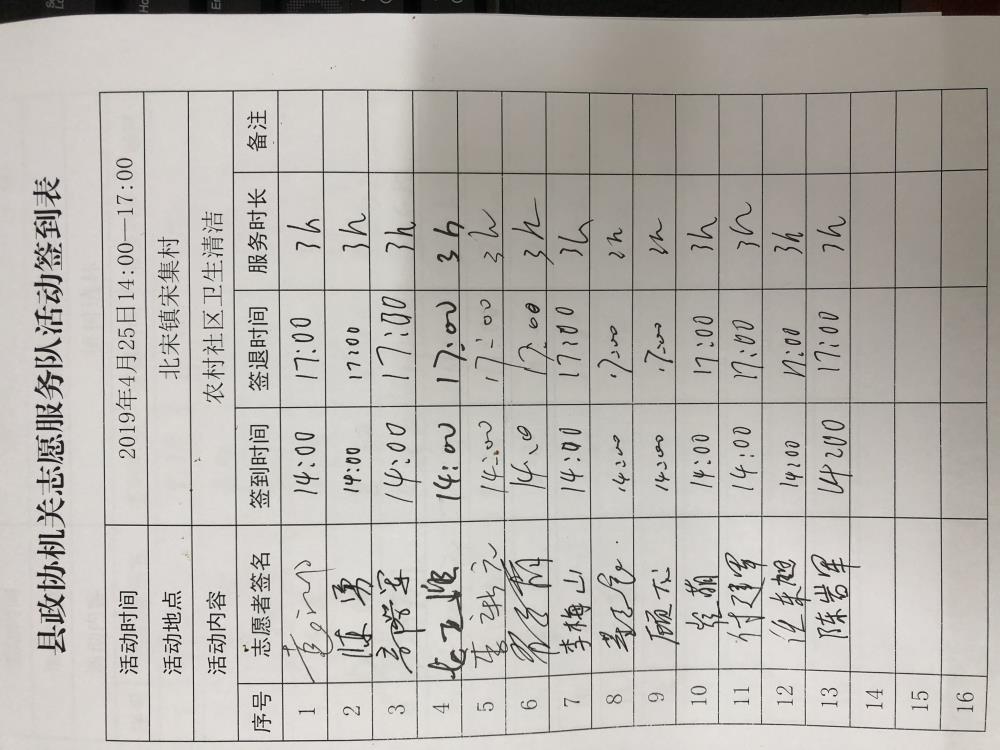 县政协机关志愿服务队活动签到表
活动时间 2019年4月25日14:00—17:00
活动地点 北宋镇宋集村
活动内容 农村社区卫生清洁
序号 志愿者签名 签到时间 签退时间 服务时长 备注
1 14:00 17:00 3h
2 14:00 17:00 3h
3 14:00 17:00 3h
4 14:00 17:00 3h
5 14:00 17:00 3h
6 17:00 3h
7 李梅山 14:00 17:00 3h
8 14:00 17:00
9 14:00 17:00
10 14:00 17:00 3h
11 付建军 14:00 17:00 3h
12 14:00 17:00 3h
13 陈岩军 14:00 17:00 3h
14
15
16